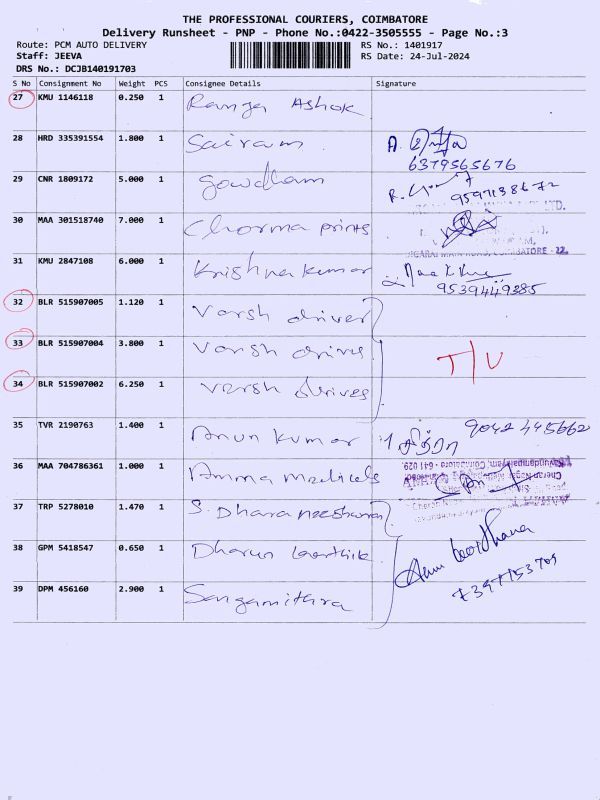 THE PROFESSIONAL COURIERS, COIMBATORE
Delivery Runsheet - PNP - Phone No.:0422-3505555 - Page No.:3
Route: PCM AUTO DELIVERY RS No.: 1401917
Staff: JEEVA RS Date: 24-Jul-2024
DRS No.: DCJB140191703
S No Consignment No Weight PCS Consignee Details Signature
27 KMU 1146118 0.250 1 Ranga Ashok
28 HRD 335391554 1.800 1 Sairam
6379565676
29 CNR 1809172 5.000 1 Gowdham
30 MAA 301518740 7.000 1 Chorma prints
31 KMU 2847108 6.000 1 Krishnakumar
9539449385
32 BLR 515907005 1.120 1 Varsh driver
33 BLR 515907004 3.800 1 Varsh drives
T/U
34 BLR 515907002 6.250 1 Varsh drives
35 TVR 2190763 1.400 1 Arun Kumar 9042 445662
36 MAA 704786361 1.000 1 Amma medicals
37 TRP 5278010 1.470 1 S. Dharaneeshwaran
38 GPM 5418547 0.650 1 Dharun karthik
39 DPM 456160 2.900 1 Sangamithra